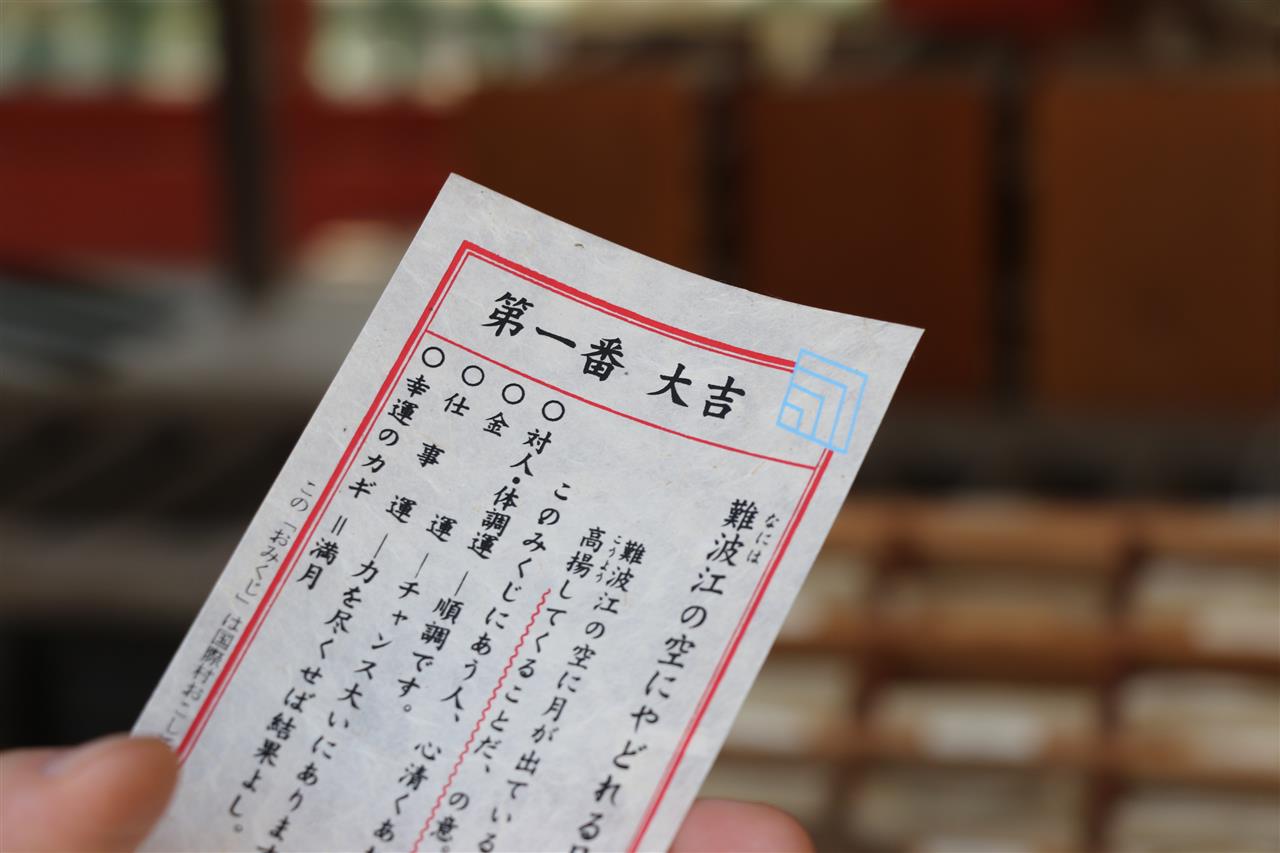 第一番 大吉
なには
難波江の空にやどれる
難波江の空に月が出ている
こうよう
高揚してくることだ、の意。
このみくじにあう人、心清くあ
○対人・体調運―順調です。
○金運―チャンス大いにあります
○仕事運―力を尽くせば結果よし。
○幸運のカギ=満月
この「おみくじ」は国際村おこし